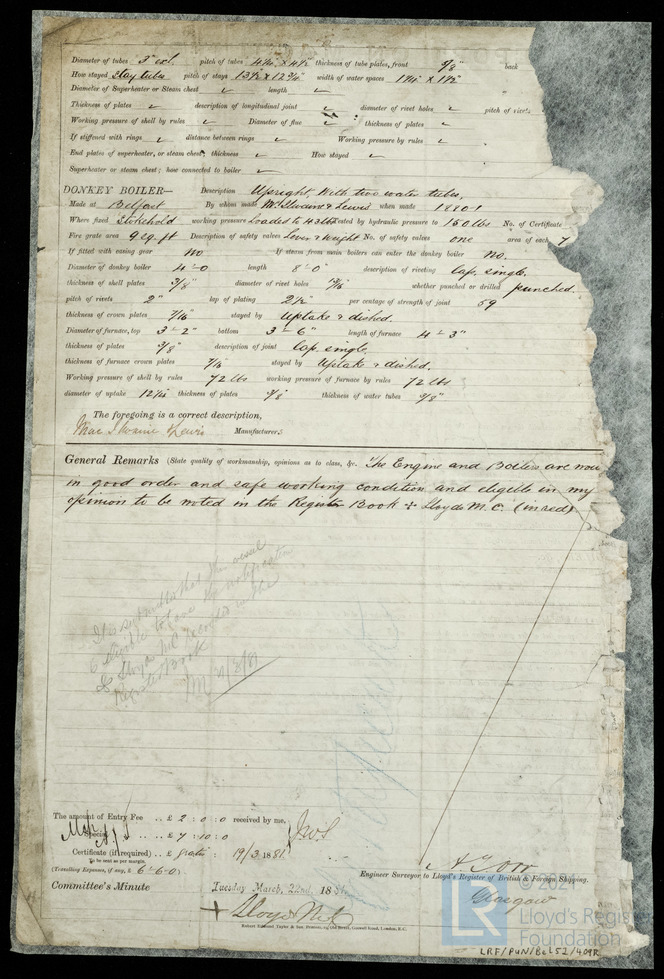 Diameter of tubes 3" ext. pitch of tubes 4½ x 4½ thickness of tube plates, front 5/8" back
How stayed Stay tubes pitch of stays 13½ x 12¾" width of water spaces
Diameter of Superheater or Steam chest ✓ length ✓
Thickness of plates ✓ description of longitudinal joint ✓ diameter of rivet holes ✓ pitch of rivets
Working pressure of shell by rules ✓ Diameter of flue ✓ thickness of plates ✓
If stiffened with rings ✓ distance between rings ✓ Working pressure by rules ✓
End plates of superheater, or steam chest; thickness ✓ How stayed ✓
Superheater or steam chest; how connected to boiler ✓
DONKEY BOILER— Description Upright with two water tubes,
Made at Belfast By whom made MacIlwaine & Lewis when made 1880-1
Where fixed Stokehold working pressure Loaded to 43 lbs tested by hydraulic pressure to 150 lbs No. of Certificate
Fire grate area 9 sq. ft Description of safety valves Lever & Weight No. of safety valves one area of each 7
If fitted with easing gear No If steam from main boilers can enter the donkey boiler No.
Diameter of donkey boiler 4-0 length 8'-0" description of riveting Lap. single.
thickness of shell plates 3/8" diameter of rivet holes whether punched or drilled punched.
pitch of rivets 2" lap of plating 2½ per centage of strength of joint 59
thickness of crown plates 7/16 stayed by Uptake & dished.
Diameter of furnace, top 3-2" bottom 3-6" length of furnace 4-3"
thickness of plates 3/8" description of joint Lap. single.
thickness of furnace crown plates 7/16 stayed by Uptake & dished.
Working pressure of shell by rules 72 lbs working pressure of furnace by rules 72 lbs
diameter of uptake thickness of plates 3/8" thickness of water tubes 3/8"
The foregoing is a correct description,
MacIlwaine & Lewis Manufacturers
General Remarks (State quality of workmanship, opinions as to class, &c. The Engine and Boilers are now
in good order and safe working condition and eligible in my
opinion to be noted in the Register Book ✣ Lloyds M.C. (in red).
It is submitted that this vessel
is eligible to have the notification
✣ Lloyds MC recorded in the
Register Book
The amount of Entry Fee .. £ 2 : 0 : 0 received by me,
Special .. .. £ 7 : 10 : 0
Certificate (if required) .. £ gratis : 19/3 1881
To be sent as per margin.
(Travelling Expenses, if any, £ 6-6-0)
Engineer Surveyor to Lloyd's Register of British & Foreign Shipping.
Glasgow
Committee's Minute Tuesday March, 22nd, 1881.
+ Lloyds M.C.
Robert Edmund Taylor & Son, Printers, 19, Old Street, Goswell Road, London, E.C.
© 2021
LR Lloyd's Register
Foundation
LRF/PUN/BEL52/409R